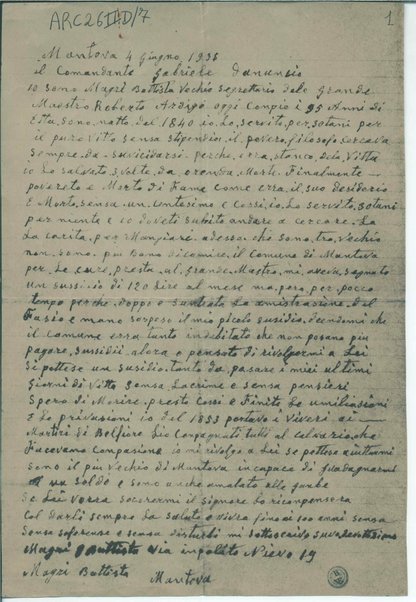 ARC26IAD/7
1
Mantova 4 giugno 1935
il Comandante Gabriele Danunsio
io sono Magri Battista Vechio Segretario delo Grande
Maestro Roberto Ardigò oggi Conpio i 95 Anni di
Età. Sono. natto. del 1840 io. Lo. servito. per. 20tani per
il puro vito sensa stipendio. il povero. filosofo cercava
sempre. da suicidarsi perche. erra stanco. dela Vitta
io Lo salvato 5 volte. da orenda. Morte. Finalmente
povereto e Morto di Fame come erra il suo desiderio
E Morto. sensa un Centesimo e Cossi. io. Lo servito. 20tani
per niente e io doveti subito andare a cercare. La
La carita. per. Manjiare. adesso. che sono. tro. Vechio
non. sono. piu Bono di camire. il Comune di Mantova
per. Le cure. presta al. grande. Mastro. mi. aveva. segnato
un sussi. io di 120 lire al mese ma. pero. per. pocco
tempo perche. doppo e suntrato La amistrazione. del
Fasio e mano sorpeso il mio picolo susidio. dicendomi che
il comune erra tanto indebitato che non posano piu
pagare. sussidii alora o pensato di rivolgermi a Lei
Si pottese un susidio. tanto da pasare i miei ultimi
Giorni di Vitto sensa Lacrime e sensa pensieri
Spero di Morire. presto Cossi e Finito Le umiliasioni
E Le privasioni io del 1853 portavo i Viveri ai
Martiri di Belfiore Lio Conpagnati tutti al calvario. che
Facevano Conpasione io mi rivolgo a Lei se pottese aiuttarmi
sono il piu Vechio di Mantova incapace di guadagnarmi
un soldo e sono anche amalato alle gambe
Se Lei vorra socorermi il signore Lo riconpensera
Col darli sempre La salute e vivra fino ai 100 anni sensa
Sensa soferense e sensa disturbi mi sottoscrivo sua devotissimo
Magri Battista Via inpolito Nievo 19
Magri Battista Mantova